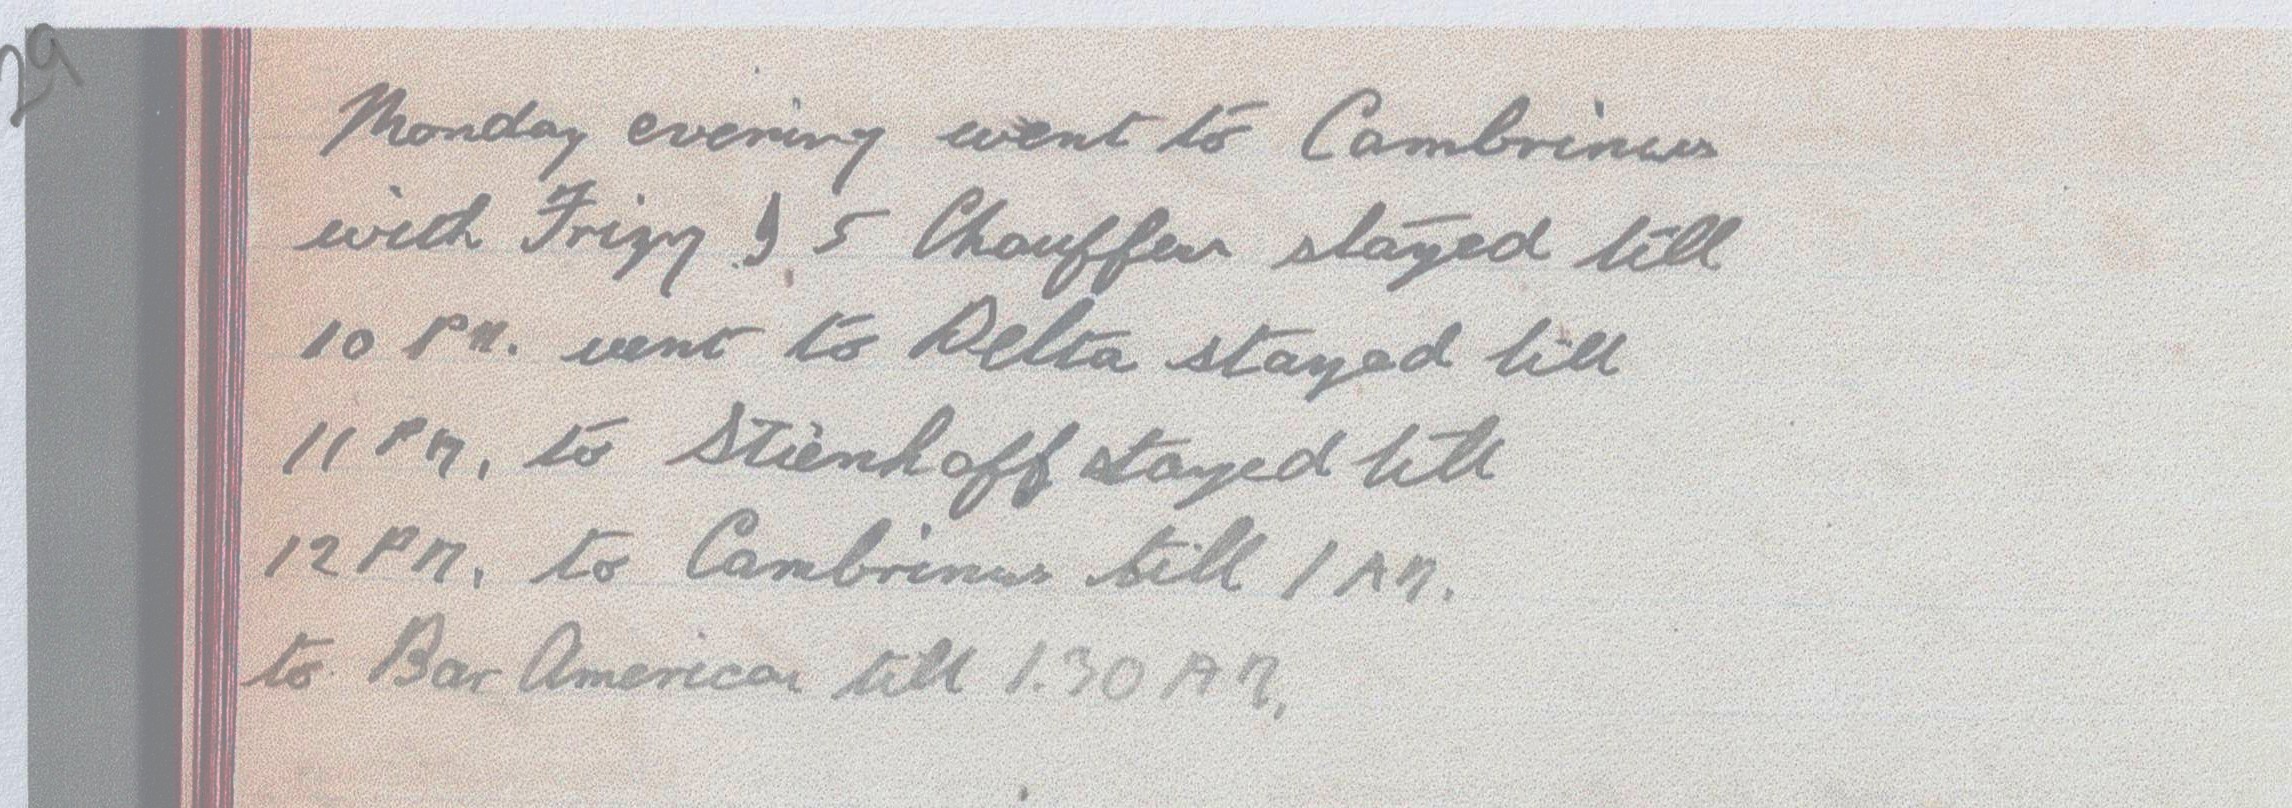 29
Monday evening went to Cambrinus
with Frizy & 5 Chauffeur stayed till
10 PM. went to Delta stayed till
11 PM. to Stienhoff stayed till
12 PM. to Cambrinus till 1 AM.
to Bar American till 1.30 AM.